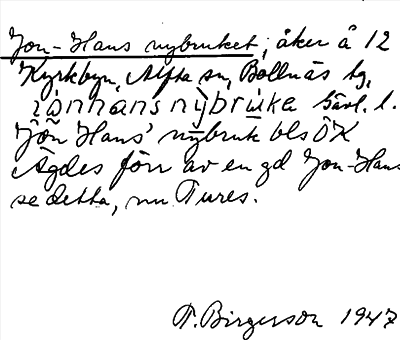 Jon-Hans nybruket, åker å 12
Kyrkbyn, Alfta sn, Bollnäs tg,
Gävl. l.
Jon Hans' nybruk bls ÖK
Ägdes förr av en gd Jon-Hans
se detta, nu Tures.
F. Birgerson 1947